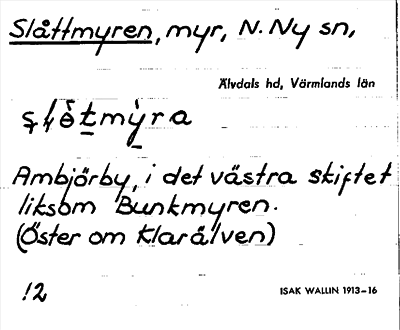 Slåttmyren, myr, N. Ny sn,
Älvdals hd, Värmlands län
Ambjörby, i det västra skiftet
liksom Bunkmyren.
(Öster om Klarälven)
12
ISAK WALLIN 1913–16